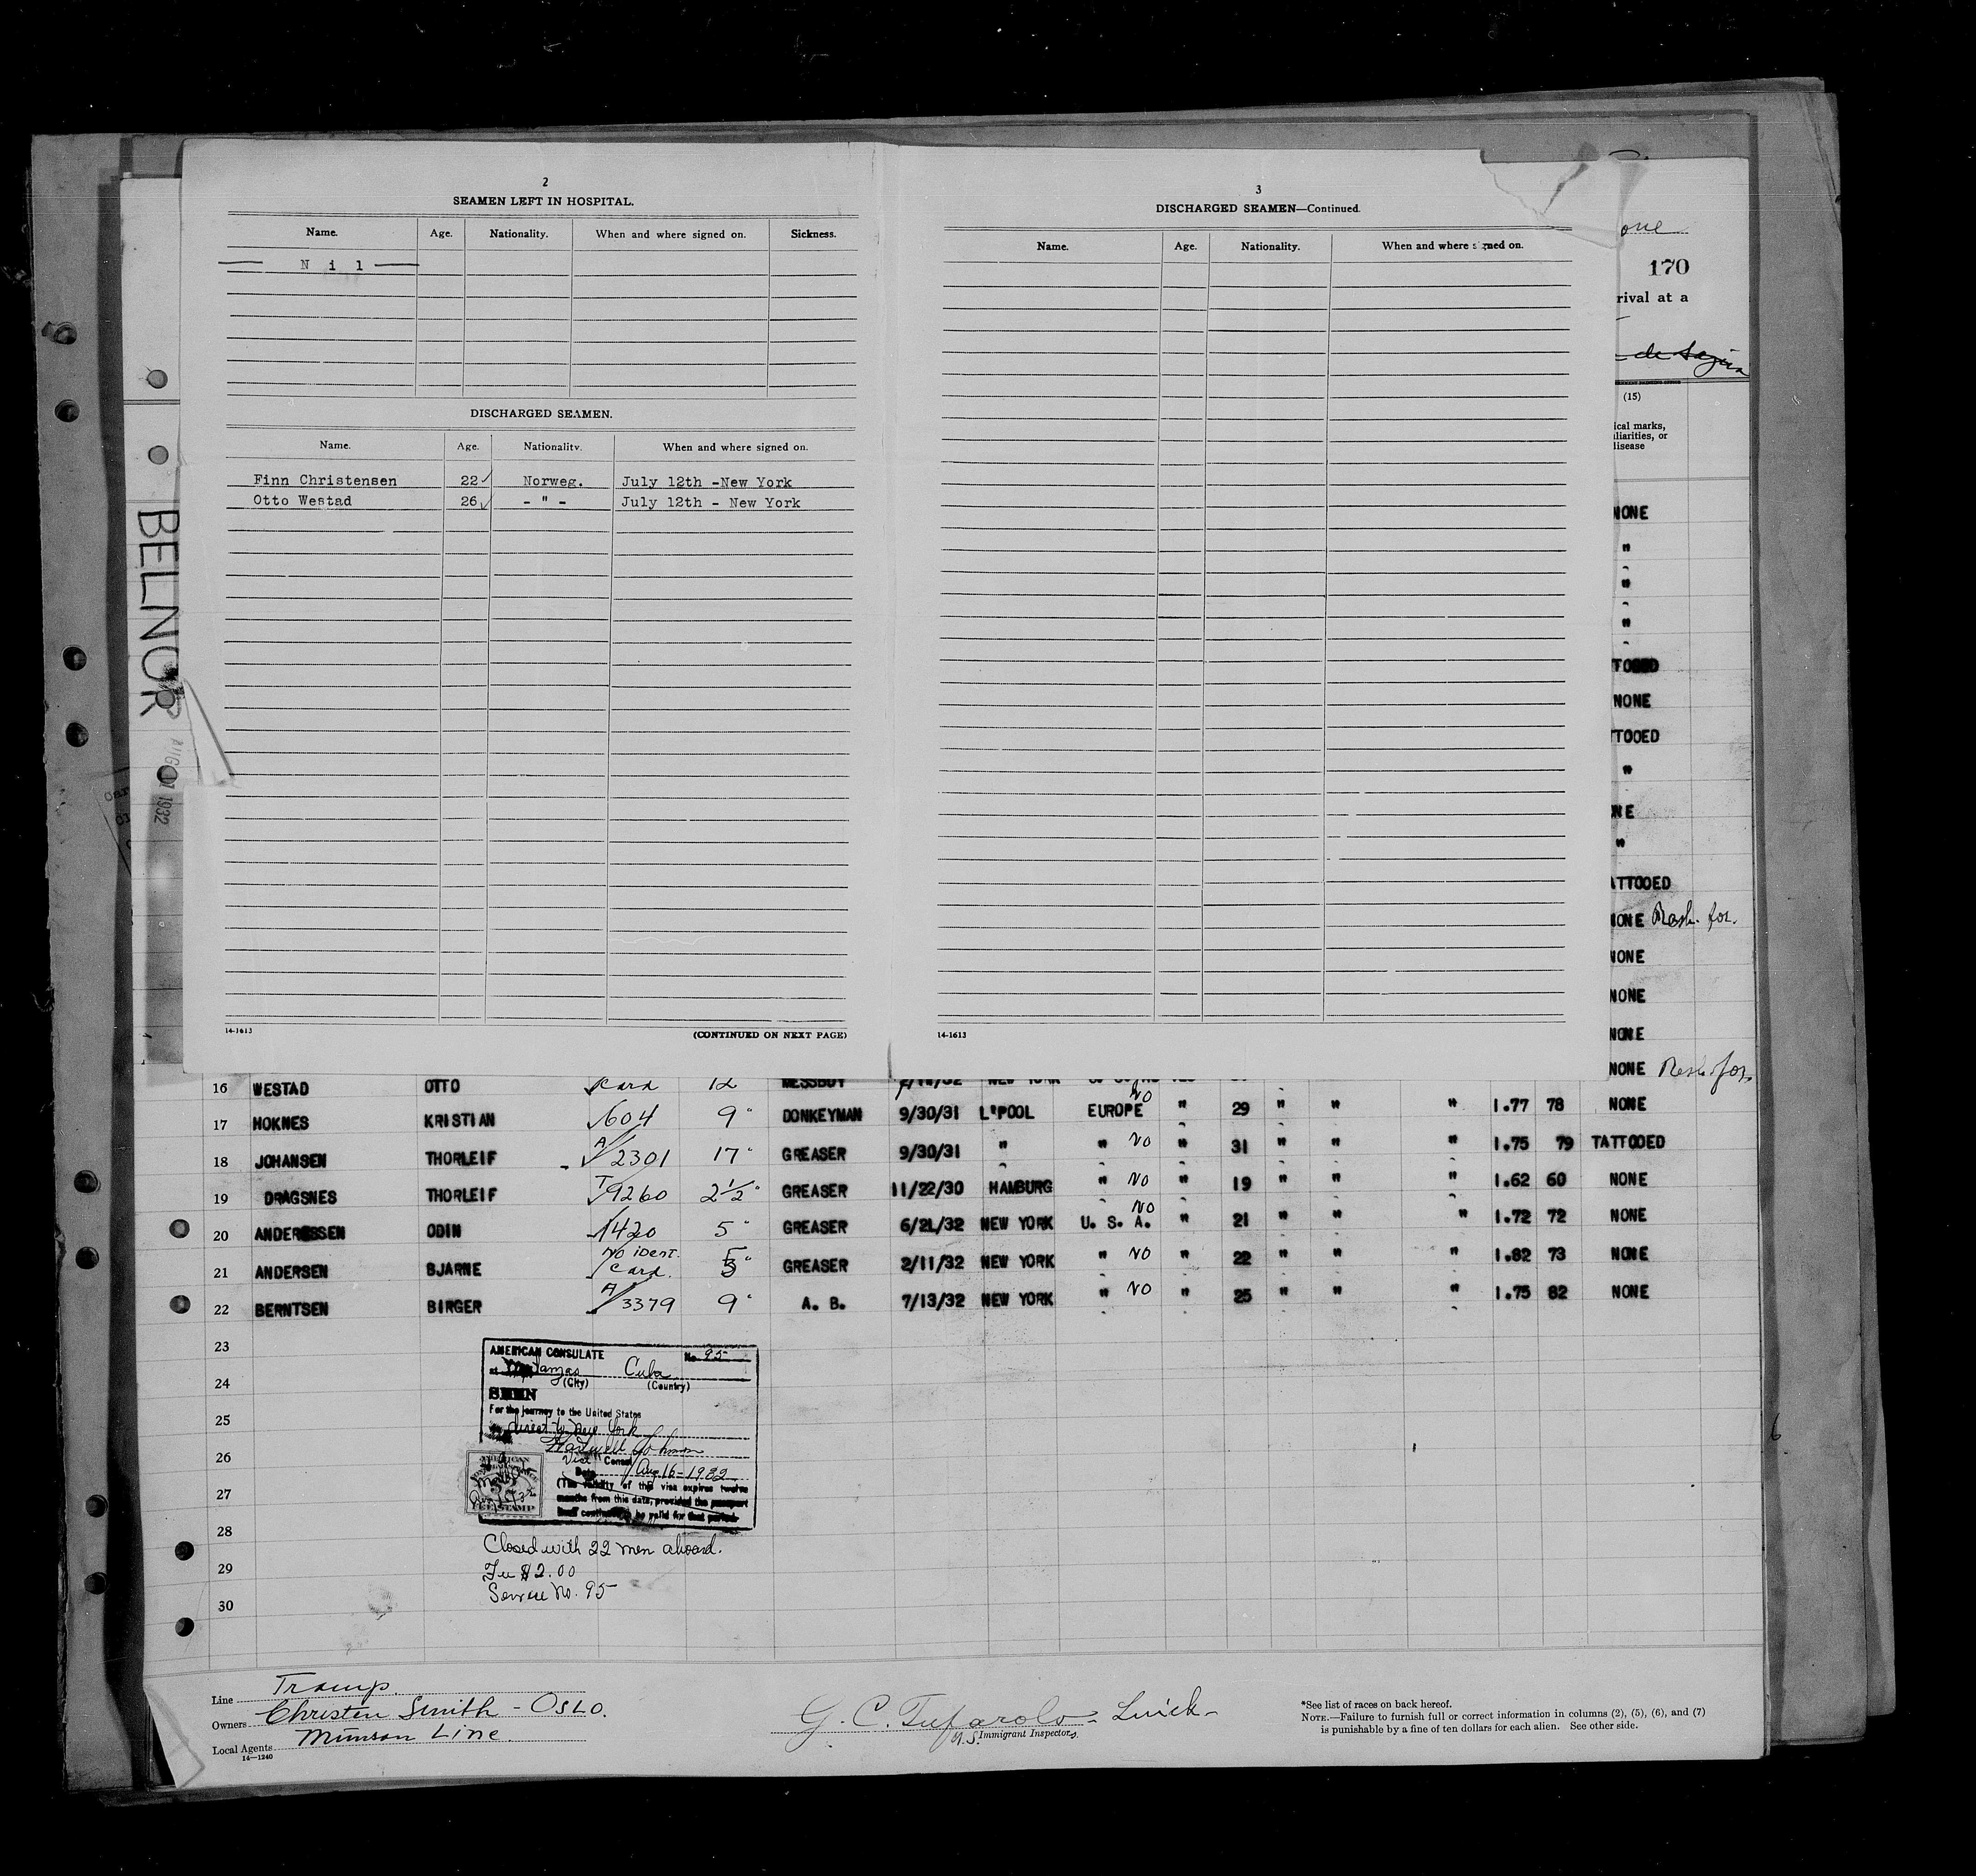 2
SEAMEN LEFT IN HOSPITAL.
Name. Age. Nationality. When and where signed on. Sickness.
N i l
DISCHARGED SEAMEN.
Name. Age. Nationality. When and where signed on.
Finn Christensen 22 Norweg. July 12th -New York
Otto Westad 26 - " - July 12th - New York
14-1613 (CONTINUED ON NEXT PAGE)
3
DISCHARGED SEAMEN—Continued.
Name. Age. Nationality. When and where signed on.
14-1613
one
170
rival at a
de
(15)
ical marks,
liarities, or
disease
NONE
"
"
"
TOOED
NONE
TTOOED
"
NE
"
ATTOOED
NONE
NONE
NONE
NONE
NONE
BELNOR
1932
16 WESTAD OTTO Card 12 MESSBOY NEW YORK
17 HOKNES KRISTIAN 604 9" DONKEYMAN 9/30/31 L'POOL EUROPE NO " 29 " " " 1.77 78 NONE
18 JOHANSEN THORLEIF A/2301 17" GREASER 9/30/31 " " NO " 31 " " " 1.75 79 TATTOOED
19 DRAGSNES THORLEIF T/9260 2½" GREASER 11/22/30 HAMBURG " NO " 19 " " " 1.62 60 NONE
20 ANDERSSEN ODIN 1420 5" GREASER 6/21/32 NEW YORK U. S. A. NO " 21 " " " 1.72 72 NONE
21 ANDERSEN BJARNE No ident. Card. GREASER 2/11/32 NEW YORK " NO " 22 " " " 1.82 73 NONE
22 BERNTSEN BIRGER A/3379 9" A. B. 7/13/32 NEW YORK " NO " 25 " " " 1.75 82 NONE
23
24
25
26
27
28
29
30
AMERICAN CONSULATE No. 95
at Matanzas Cuba
(City) (Country)
SEEN
For the journey to the United States
direct to New York
Consul
Date Aug 16-1932
(The validity of this visa expires twelve
months from this date, provided the passport
continues to be valid for that period.
FEE STAMP
Closed with 22 men aboard.
Fee $2.00
Service No. 95
Line Tramp.
Owners Christen Smith - OSLO.
Local Agents Munson Line.
14—1240
G. C.
U.S. Immigrant Inspector.
*See list of races on back hereof.
NOTE.—Failure to furnish full or correct information in columns (2), (5), (6), and (7)
is punishable by a fine of ten dollars for each alien. See other side.